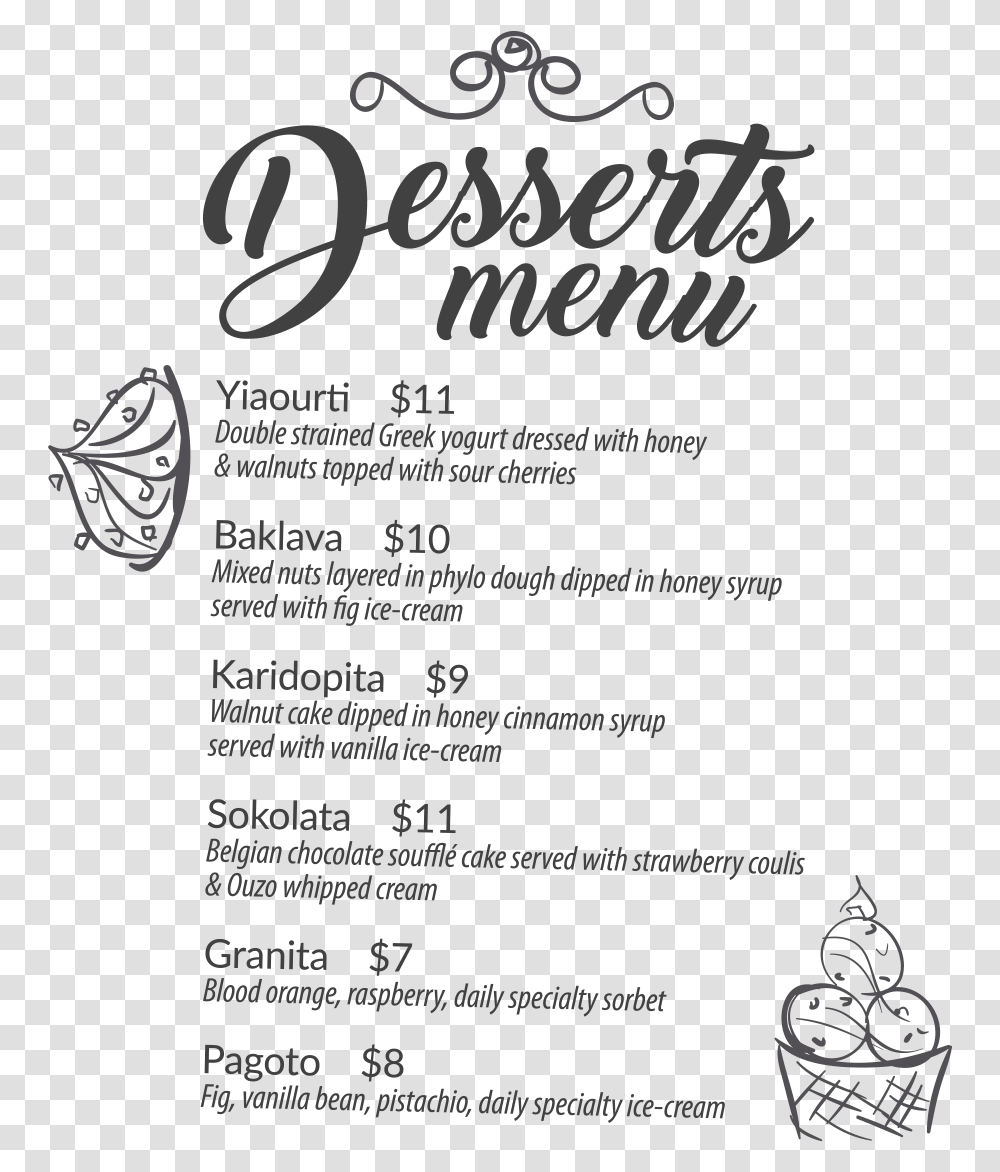 Desserts
menu
Yiaourti $11
Double strained Greek yogurt dressed with honey
& walnuts topped with sour cherries
Baklava $10
Mixed nuts layered in phylo dough dipped in honey syrup
served with fig ice-cream
Karidopita $9
Walnut cake dipped in honey cinnamon syrup
served with vanilla ice-cream
Sokolata $11
Belgian chocolate soufflé cake served with strawberry coulis
& Ouzo whipped cream
Granita $7
Blood orange, raspberry, daily specialty sorbet
Pagoto $8
Fig, vanilla bean, pistachio, daily specialty ice-cream